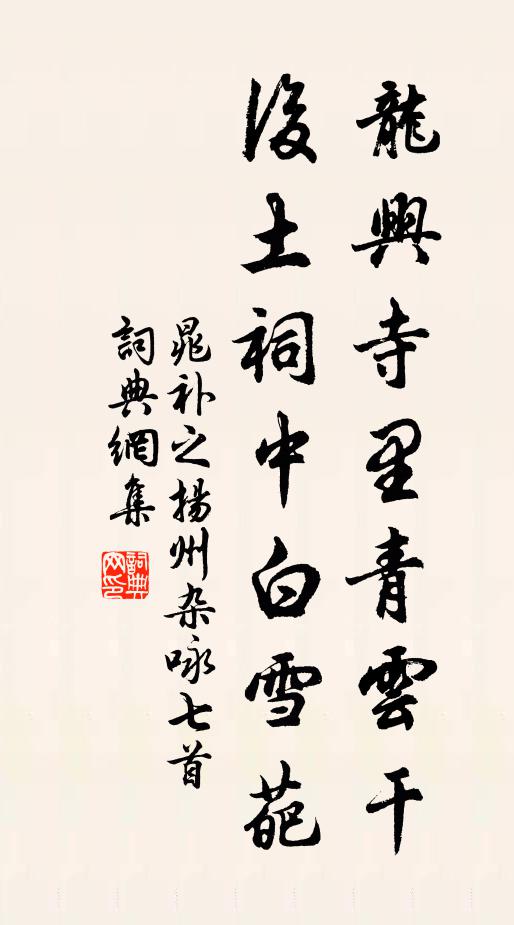 龍興寺里青雲干
後土祠中白雪葩
晁补之揚州杂咏七首
詞典網集
詞典网印